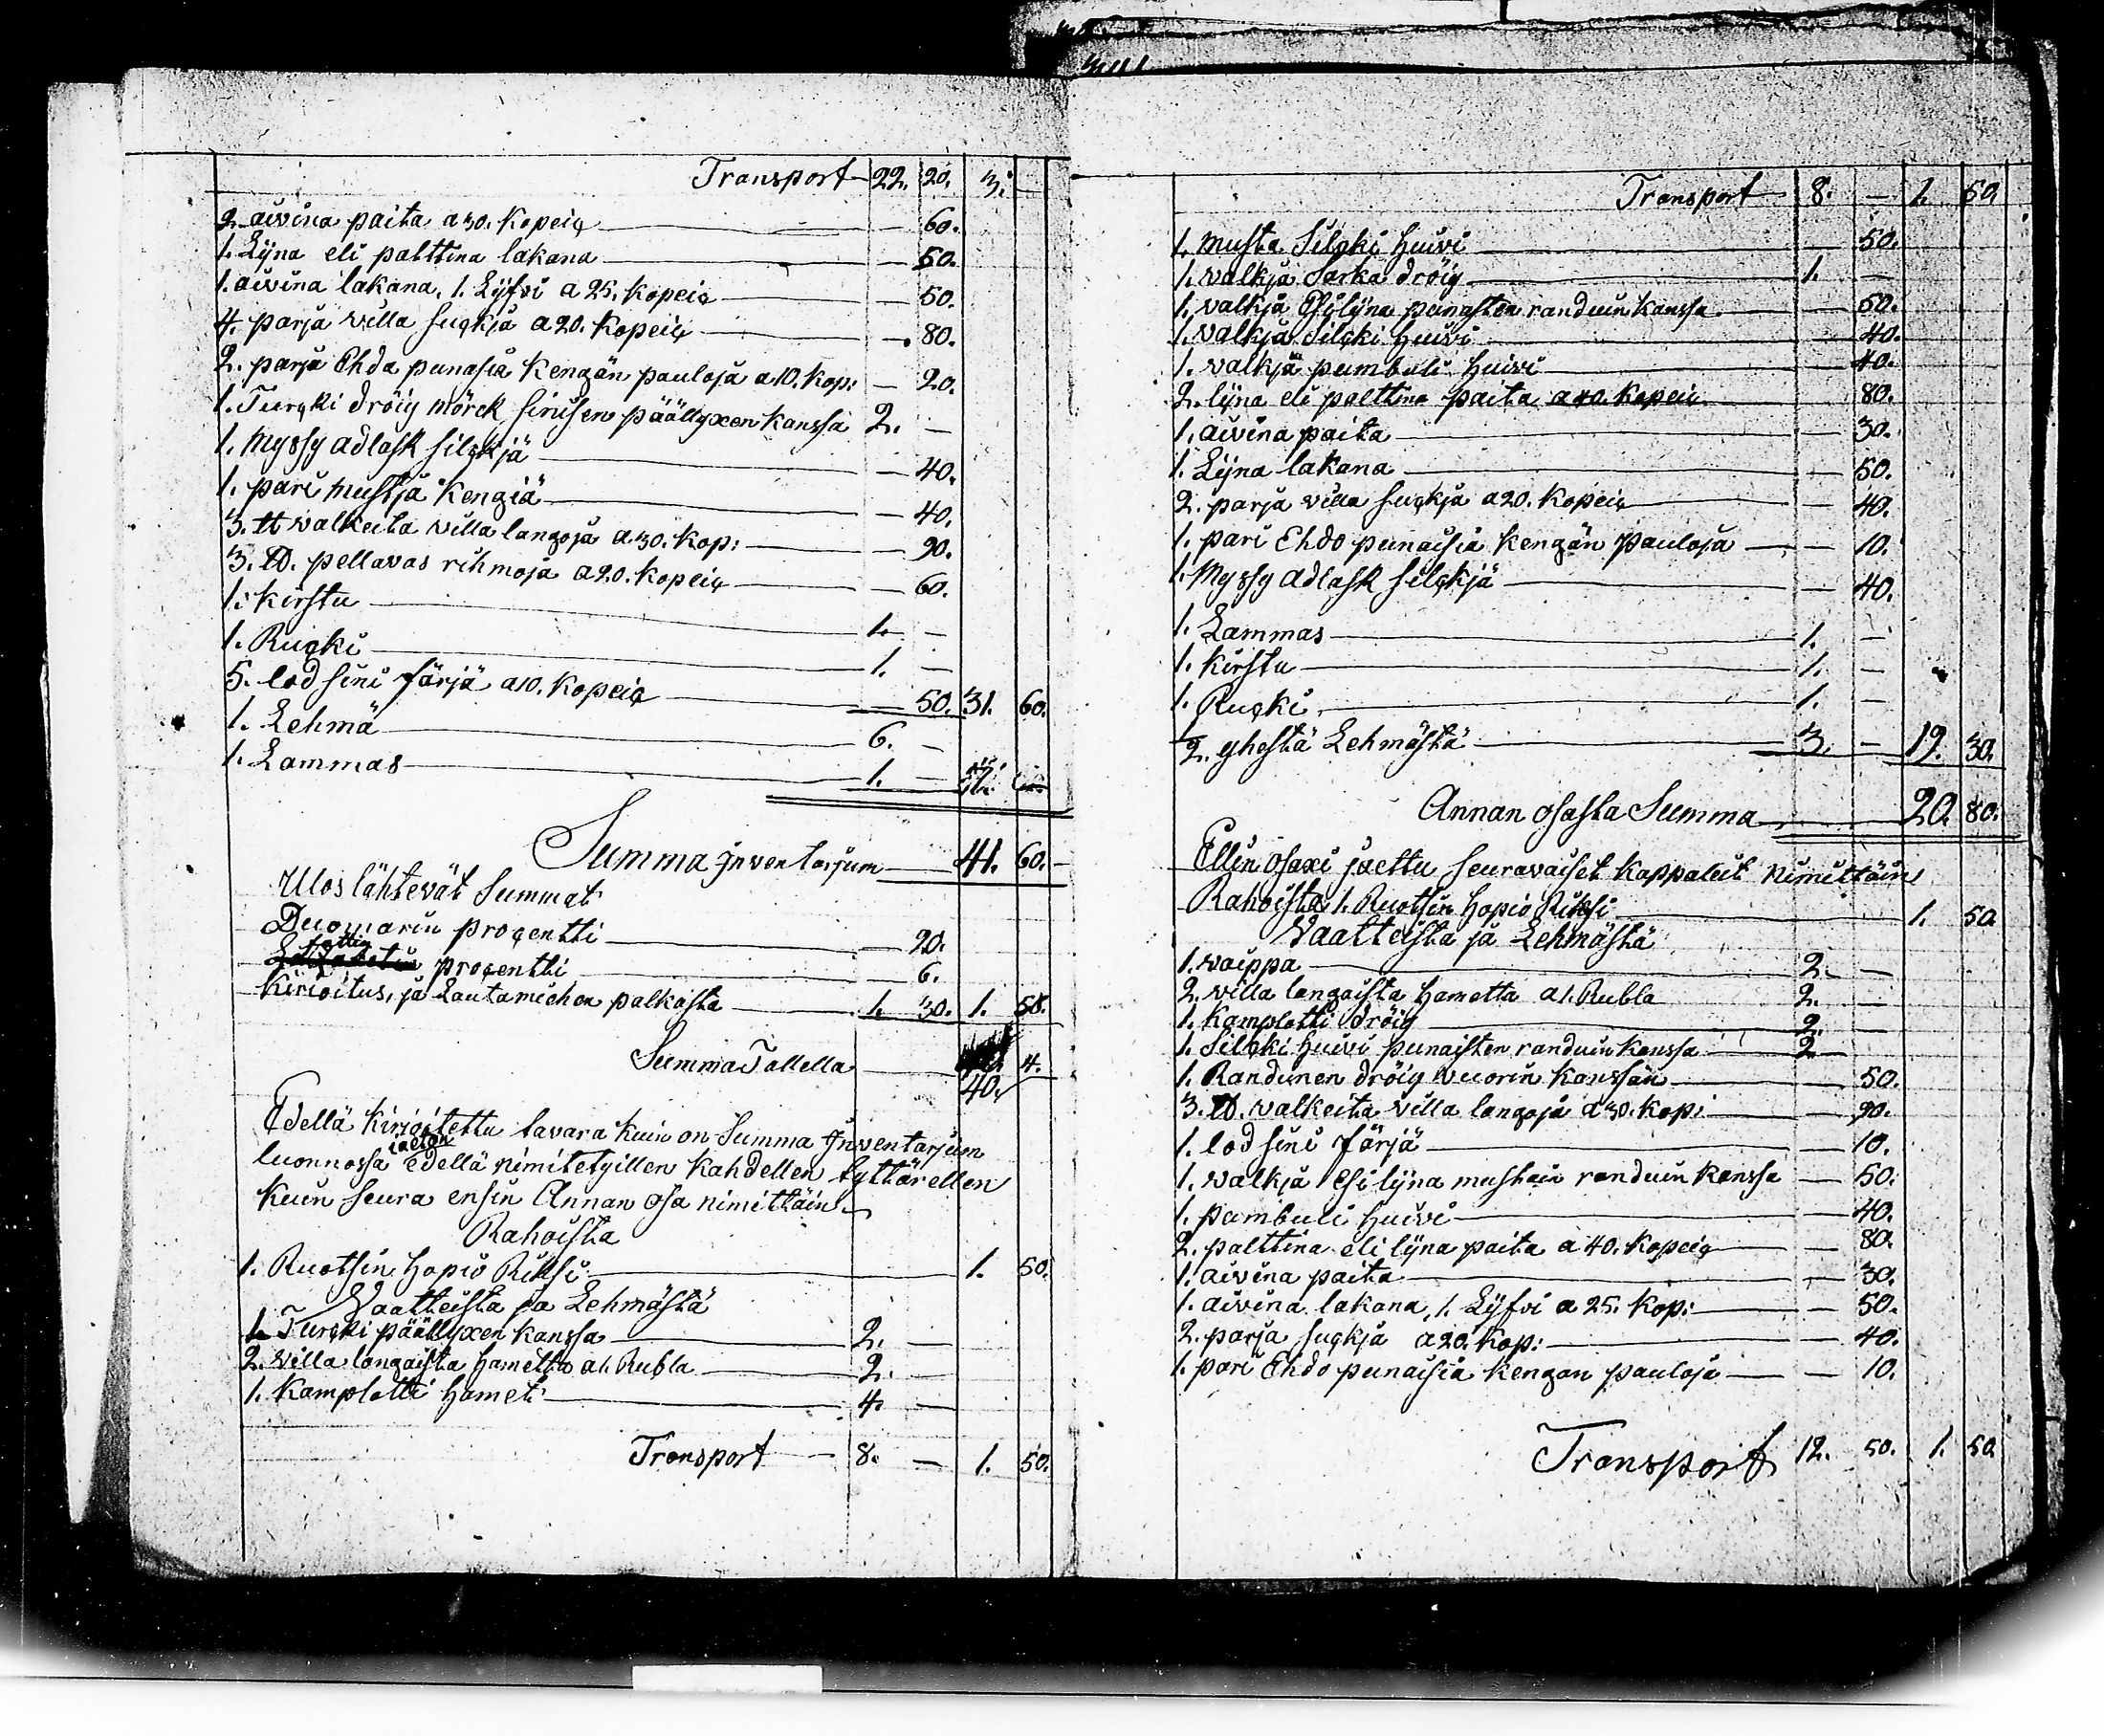 Transport 22. 20. 3. —
2. aivina paita a 30. Kopeiq — 60.
1. Lijna eli palttina lakana — 50.
1. aivina lakana, 1. Lijfvi a 25. Kopeiq — 50.
4. parja villa suckja a 20. Kopeiq — 80.
2. parja Ehda punasia Kengän pauloja a 10. Kop: — 20.
1. Turcki dröig mörck sinisen päällyxen kanssa 2. —
1. Myssy adlask silckjä — 40.
1. pari mustja Kengiä — 40.
3. ℔ valkeita villa langoja a 30. Kop: — 90.
3. ℔. pellavas rihmoja a 20. Kopeiq — 60.
1. Kirstu 1. —
1. Rucki 1. —
5. lod sini färjä a 10. Kopeiq — 50. 31. 60.
1. Lehmä 6. —
1. Lammas 1. —
Summa Jnventarjum 41. 60.
Ulos lähtevät Summat
Duomarin procentti — 20.
fattin procentti — 6.
Kirjoitus, ja Lautamiehen palkasta 1. 30. 1. 56.
Summa Tallella 4.
40.
Edellä Kirjoitettu tavara kuin on Summa Jnventarjum
luonnossa jaeton edellä nimitetyillen Kahdellen tyttärellen
Kuin seura ensin Annan osa nimittäin
Rahoista
1. Ruotsin Hopio Riksi 1. 50.
Vaatteista ja Lehmästä
1. Turcki päällyxen kanssa 2. —
2. villa langaista hametta a 1. Rubla 2. —
1. Kamplotti hamet 4. —
Transport 8. — 1. 50.
Transport 8. — 1. 50
1. musta Silcki huivi — 50.
1. valkja Sarka dröig 1. —
1. valkja Esilijna punasten randuin kanssa — 50.
1. valkja Silcki huivi — 40.
1. valkja pumbuli huivi — 40.
2. lijna eli palttina paita a 40. Kopeiq — 80.
1. aivina paita — 30.
1. Lijna lakana — 50.
2. parja villa suckja a 20. Kopeiq — 40.
1. pari Ehdo punaisia Kengän pauloja — 10.
1. Myssy adlask silckjä — 40.
1. Lammas 1. —
1. Kirstu 1. —
1. Rucki 1. —
1/2. yhestä Lehmästä 3. — 19. 30.
Annan osasta Summa 20. 80.
Ellin osaxi jaettu seuravaiset kappaleet nimittäin
Rahoista 1. Ruotsin Hopio Riksi 1. 50
Vaatteista ja Lehmästä
1. vaippa 2. —
2. villa langaista hametta a 1. Rubla 2. —
1. Kamplotti dröig 2. —
1. Silcki huivi punaisten randuin kanssa 2 —
1. Randunen dröig vuorin kanssan — 50.
3. ℔. valkeita villa langoja a 30. Kop: — 90.
1. lod sini färjä — 10.
1. valkja Esilijna mustain randuin kanssa — 50.
1. pumbuli huivi — 40.
2. palttina eli lijna paita a 40. Kopeiq — 80.
1. aivina paita — 30.
1. aivina lakana, 1. Lijfvi a 25. Kop: — 50.
2. parja suckja a 20. Kop: — 40.
1. pari Ehdo punaisia kengan pauloja — 10.
Transport 12. 50. 1. 50